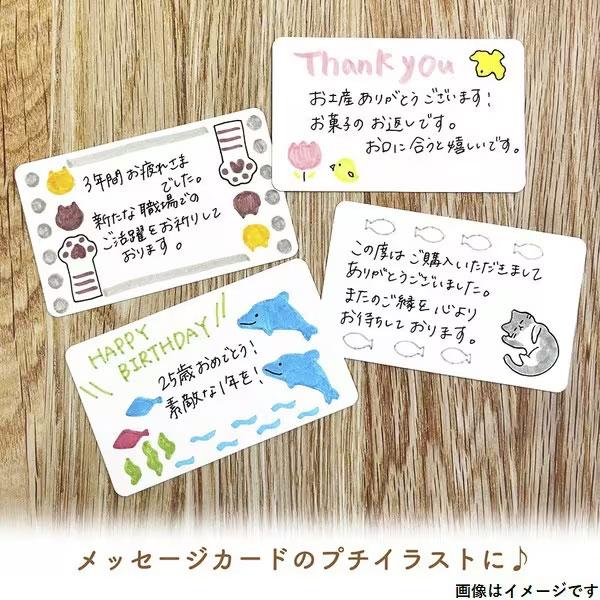 Thank you
お土産ありがとうございます!
お菓子のお返しです。
お口に合うと嬉しいです。
3年間お疲れさま
でした。
新たな職場での
ご活躍をお祈りして
おります。
この度はご購入いただきまして
ありがとうございました。
またのご縁を心より
お待ちしております。
HAPPY
BIRTHDAY!!
25歳おめでとう!
素敵な1年を!
メッセージカードのプチイラストに♪
画像はイメージです